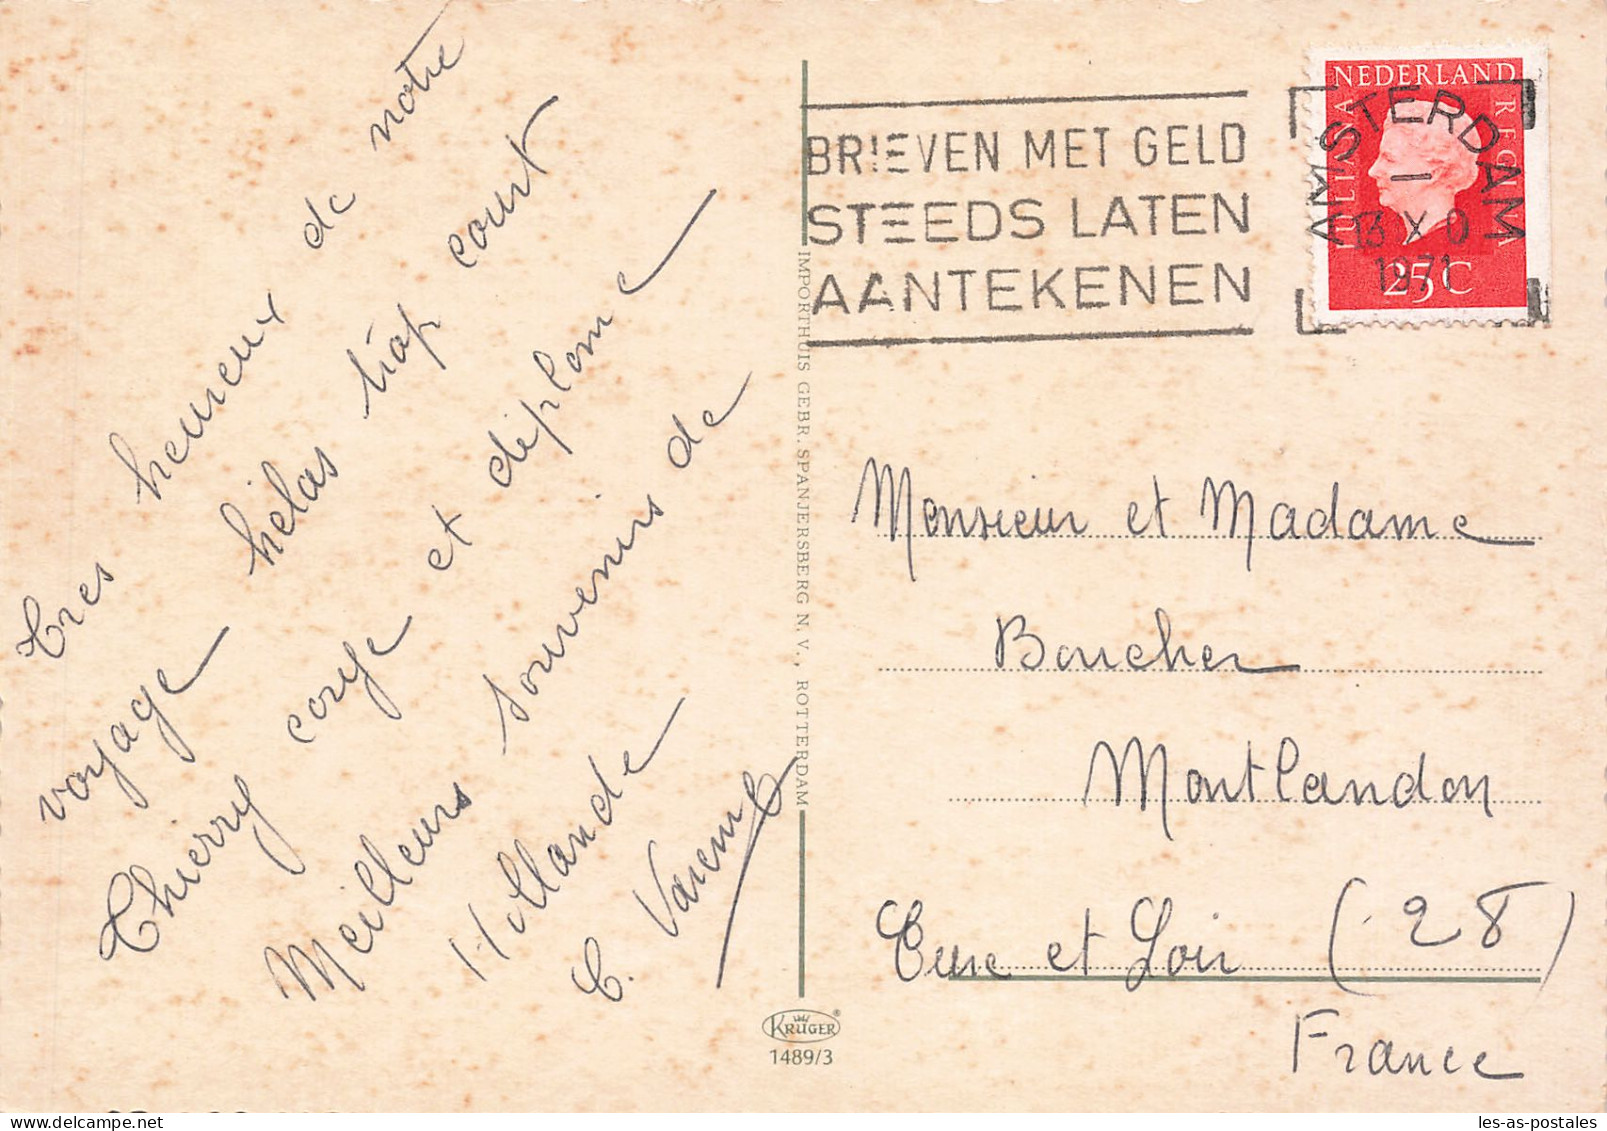 Tres heureux de notre
voyage hélas trop court
Thierry corye et diplome
Meilleurs souvenirs de
Hollande
C.
IMPORTHUIS GEBR. SPANJERSBERG N.V., ROTTERDAM
KRÜGER
1489/3
BRIEVEN MET GELD
STEEDS LATEN
AANTEKENEN
NEDERLAND
JULIANA REGINA
25C
AMSTERDAM
13 X 0
1971
Monsieur et Madame
Boucher
Montlandon
Eure et Loir (28)
France
les-as-postales